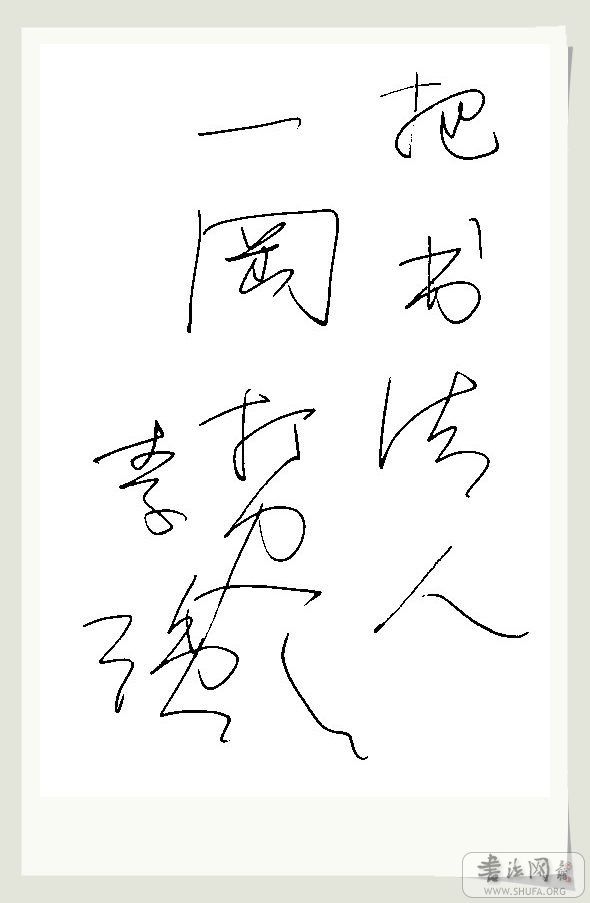 把书法人
一罔打尽
李强
書法网
WWW.SHUFA.ORG